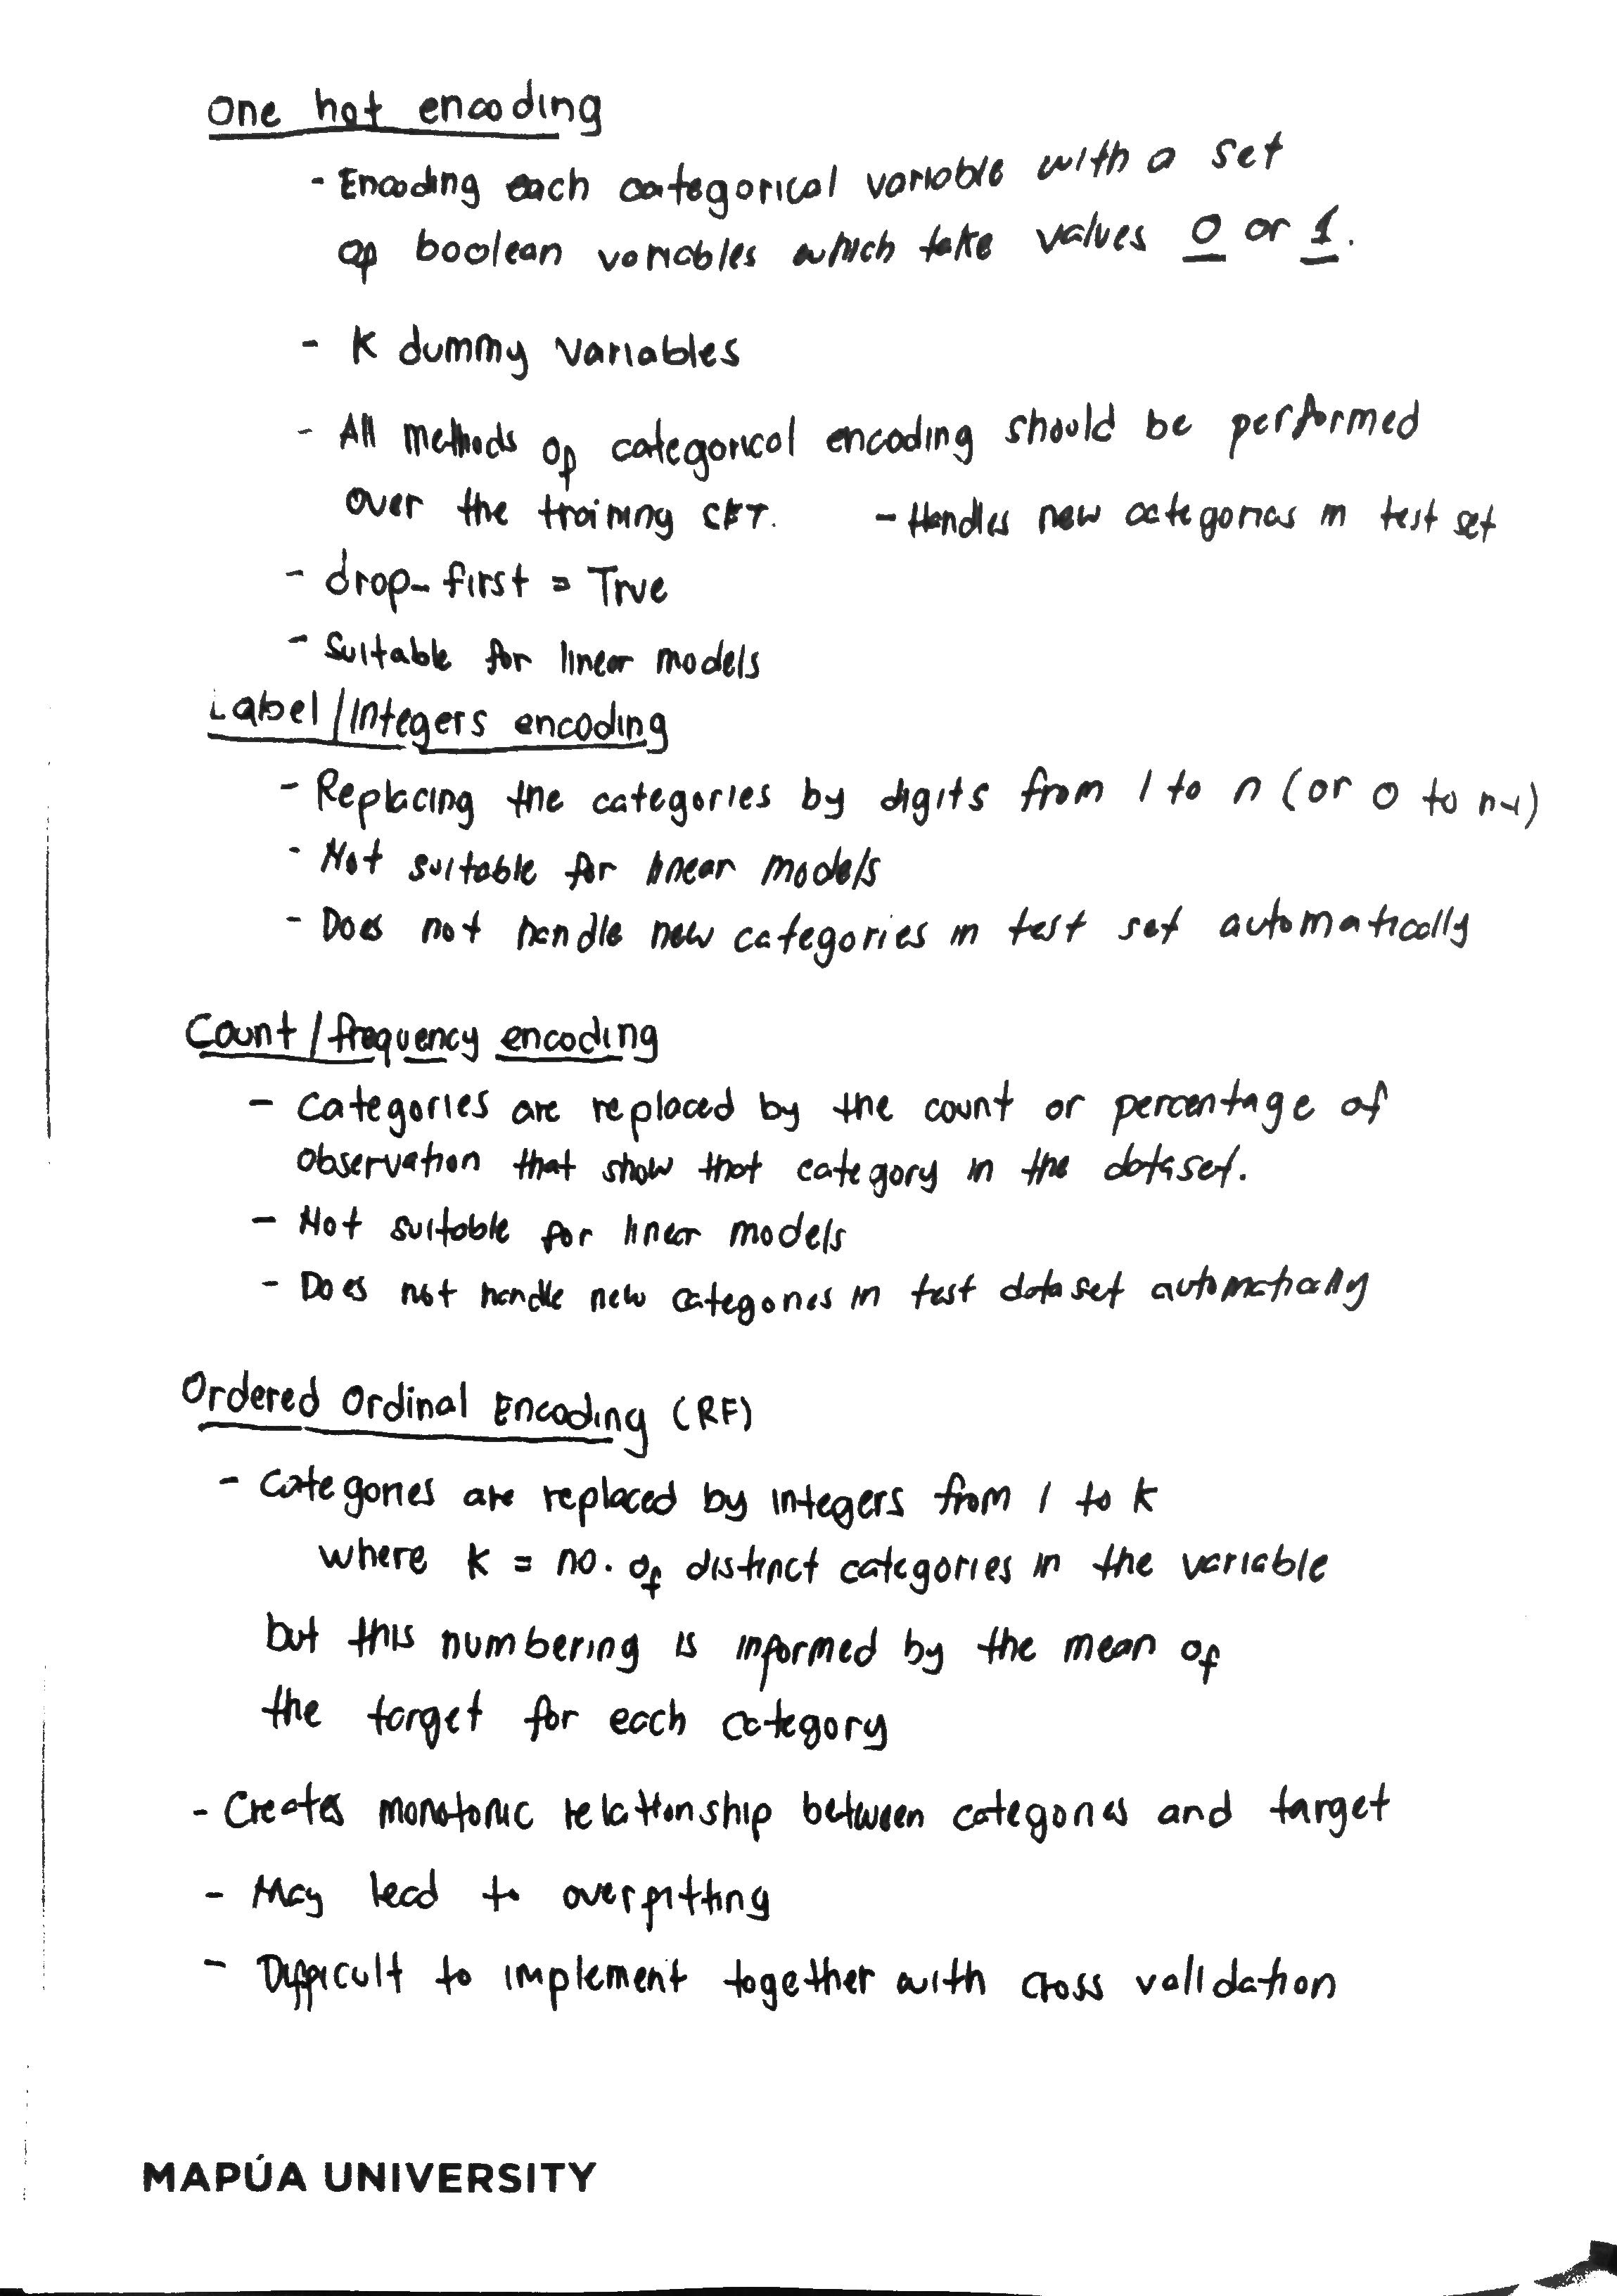 One hot encoding
- Encoding each categorical variable with a set
of boolean variables which take values 0 or 1.
- K dummy variables
- All methods of categorical encoding should be performed
over the training SET. - Handles new categories in test set
- drop_first = True
- Suitable for linear models
Label/Integers encoding
- Replacing the categories by digits from 1 to n (or 0 to n-1)
- Not suitable for linear models
- Does not handle new categories in test set automatically
Count/frequency encoding
- Categories are replaced by the count or percentage of
observation that show that category in the dataset.
- Not suitable for linear models
- Does not handle new categories in test dataset automatically
Ordered Ordinal Encoding (RF)
- Categories are replaced by integers from 1 to k
where k = no. of distinct categories in the variable
but this numbering is informed by the mean of
the target for each category
- Creates monotonic relationship between categories and target
- May lead to overfitting
- Difficult to implement together with cross validation
MAPÚA UNIVERSITY